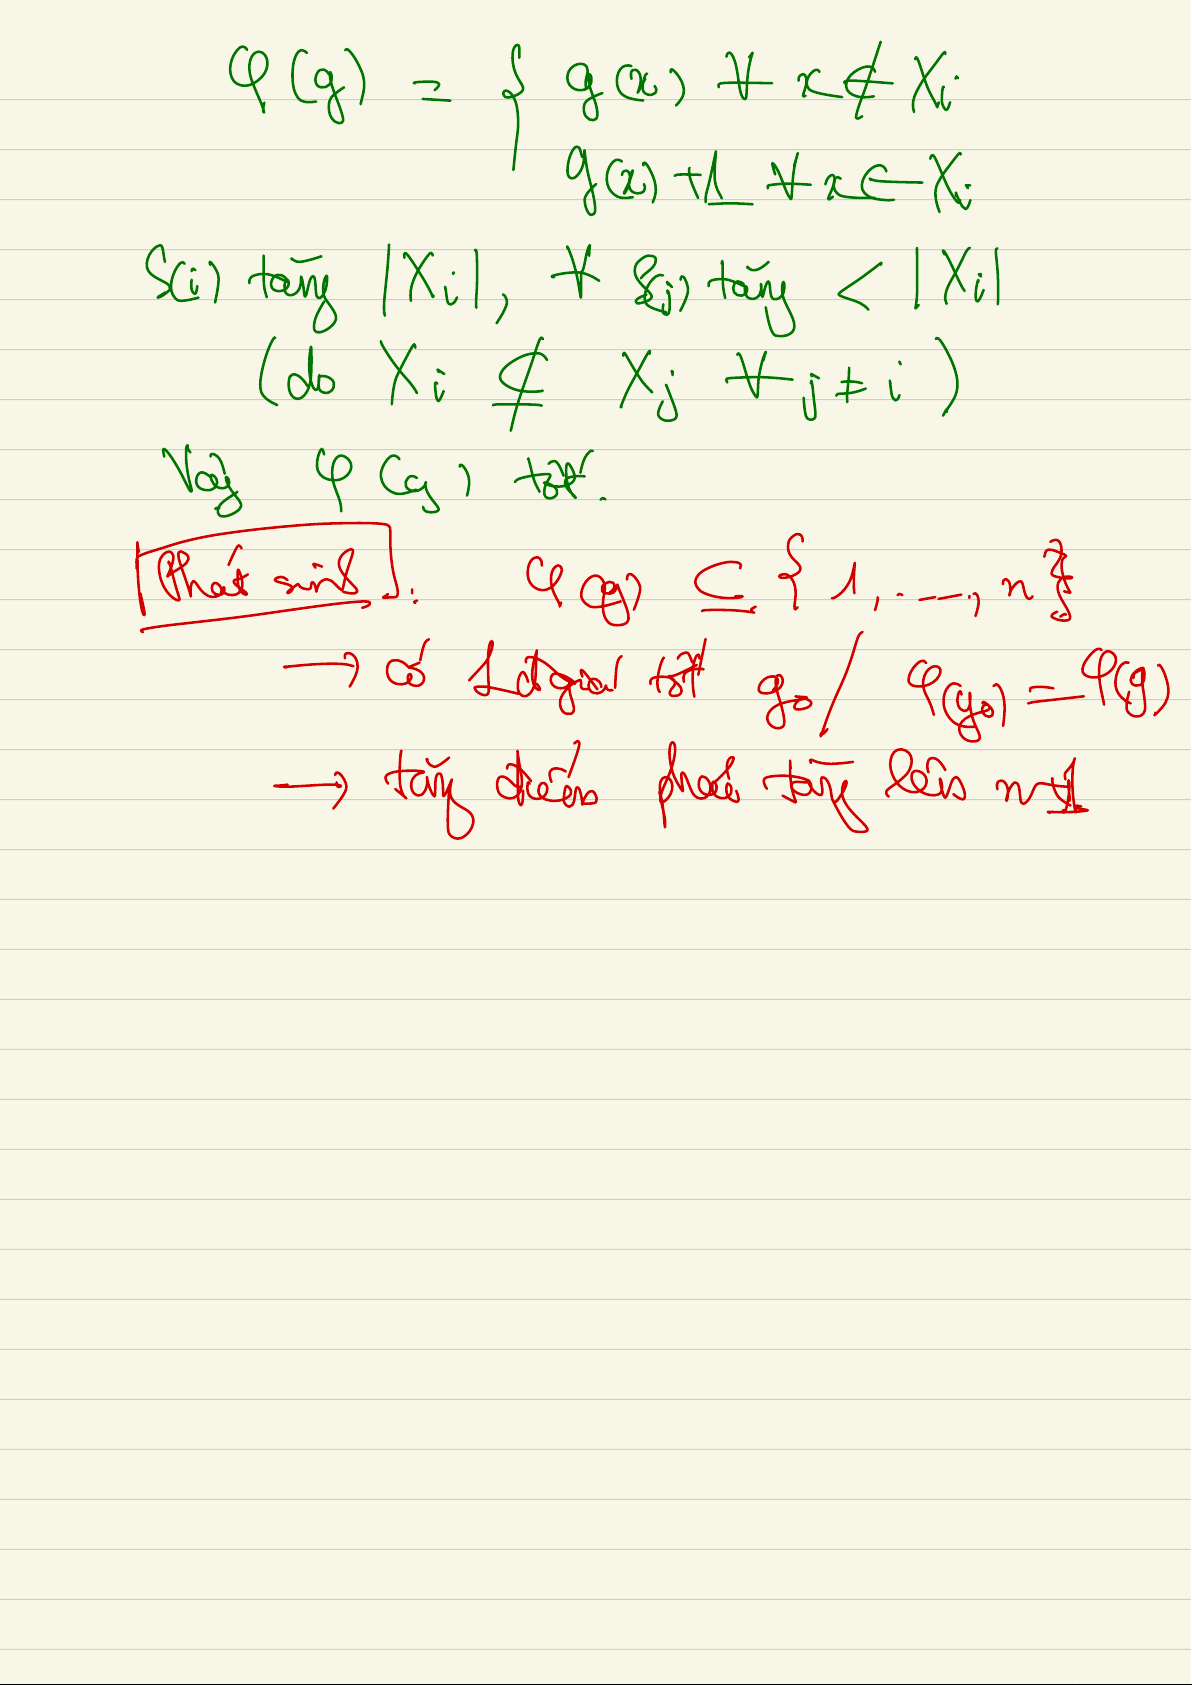 φ(g) = { g(x) ∀ x ∉ Xi
g(x) + 1 ∀ x ∈ Xi
S(i) tăng |Xi|, ∀ S(j) tăng < |Xi|
(do Xi ⊈ Xj ∀ j ≠ i)
Vậy φ(g) tốt.
Phát sinh: φ(g) ⊆ {1, ..., n}
→ có 1 đgiá tốt g₀ / φ(g₀) = φ(g)
→ tăng điểm phải tăng lên n+1